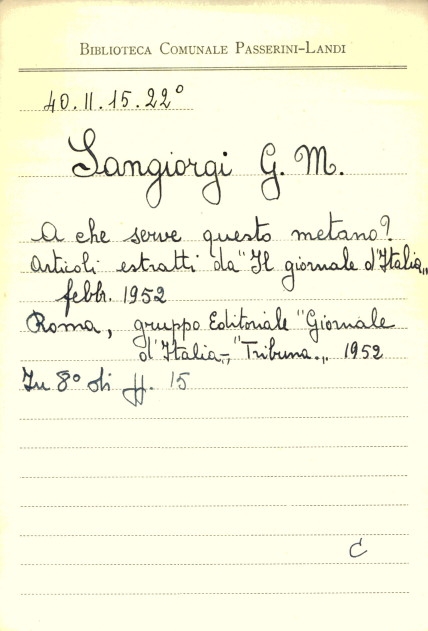 BIBLIOTECA COMUNALE PASSERINI-LANDI
40.II.15.22°
Sangiorgi G. M.
A che serve questo metano?
Articoli estratti da "Il giornale d'Italia„
febb. 1952
Roma, gruppo Editoriale "Giornale
d'Italia„-"Tribuna„ 1952
In 8° di ff. 15
C